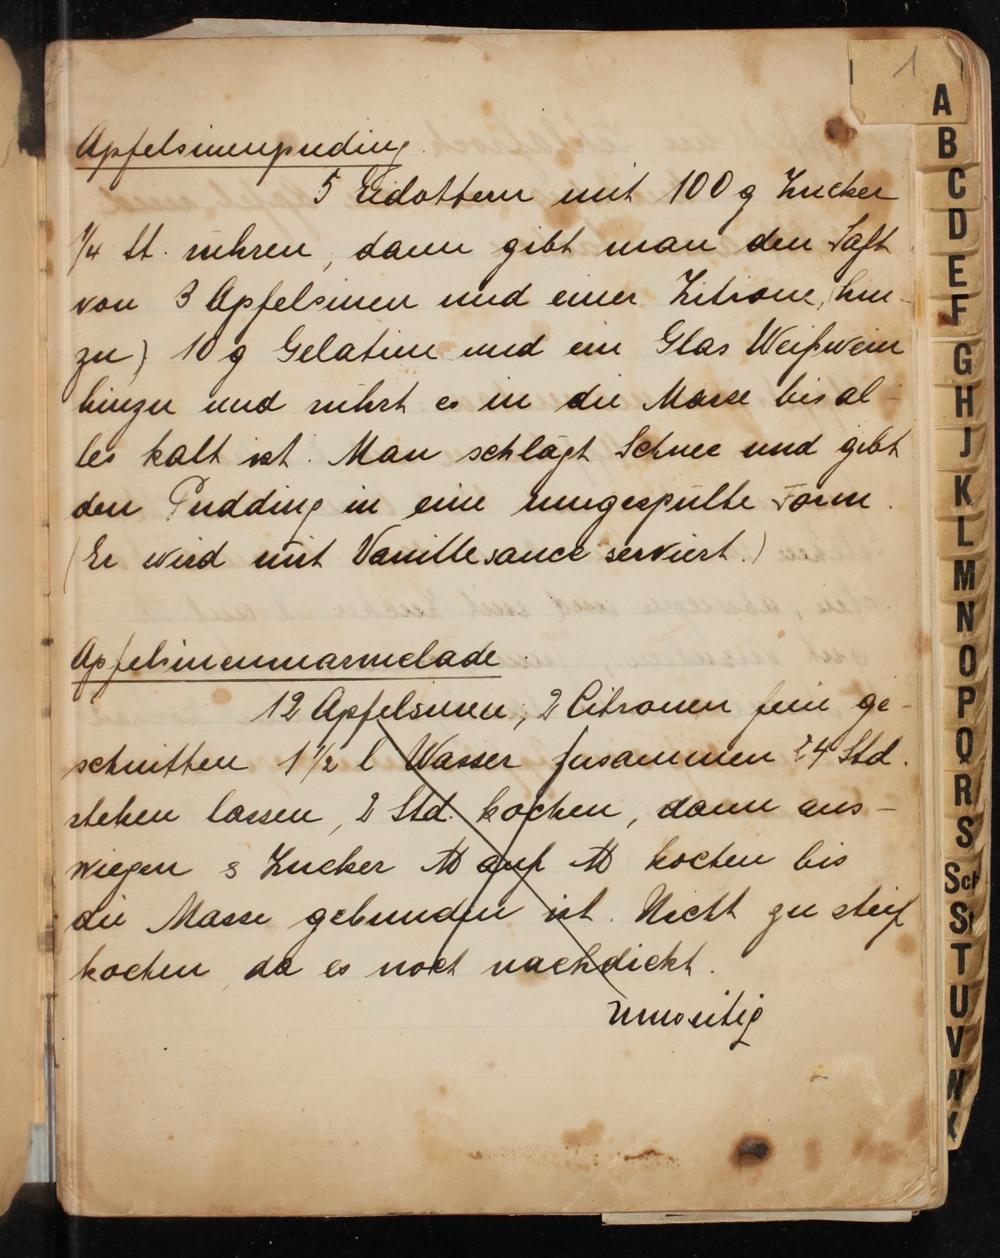 1
Apfelsinenpuding.
5 Eidottern mit 100 g Zucker
1/4 St. rühren, dann gibt man den Saft
von 3 Apfelsinen und einer Zitrone, (hin-
zu) 10 g Gelatine und ein Glas Weißwein
hinzu und rührt es in die Masse bis al-
les kalt ist. Man schlägt Schnee und gibt
den Pudding in eine umgespülte Form.
(Er wird mit Vanillesauce serviert.)
Apfelsinenmarmelade.
12 Apfelsinen, 2 Citronen fein ge-
schnitten 1 1/2 l Wasser zusammen 24 Std.
stehen lassen, 2 Std. kochen, dann aus-
wiegen Zucker ℔ auf ℔ kochen bis
die Masse gebunden ist. Nicht zu steif
kochen da es noch nachdickt.
umseitig
A
B
C
D
E
F
G
H
J
K
L
M
N
O
P
Q
R
S
Sch
St
T
U
V